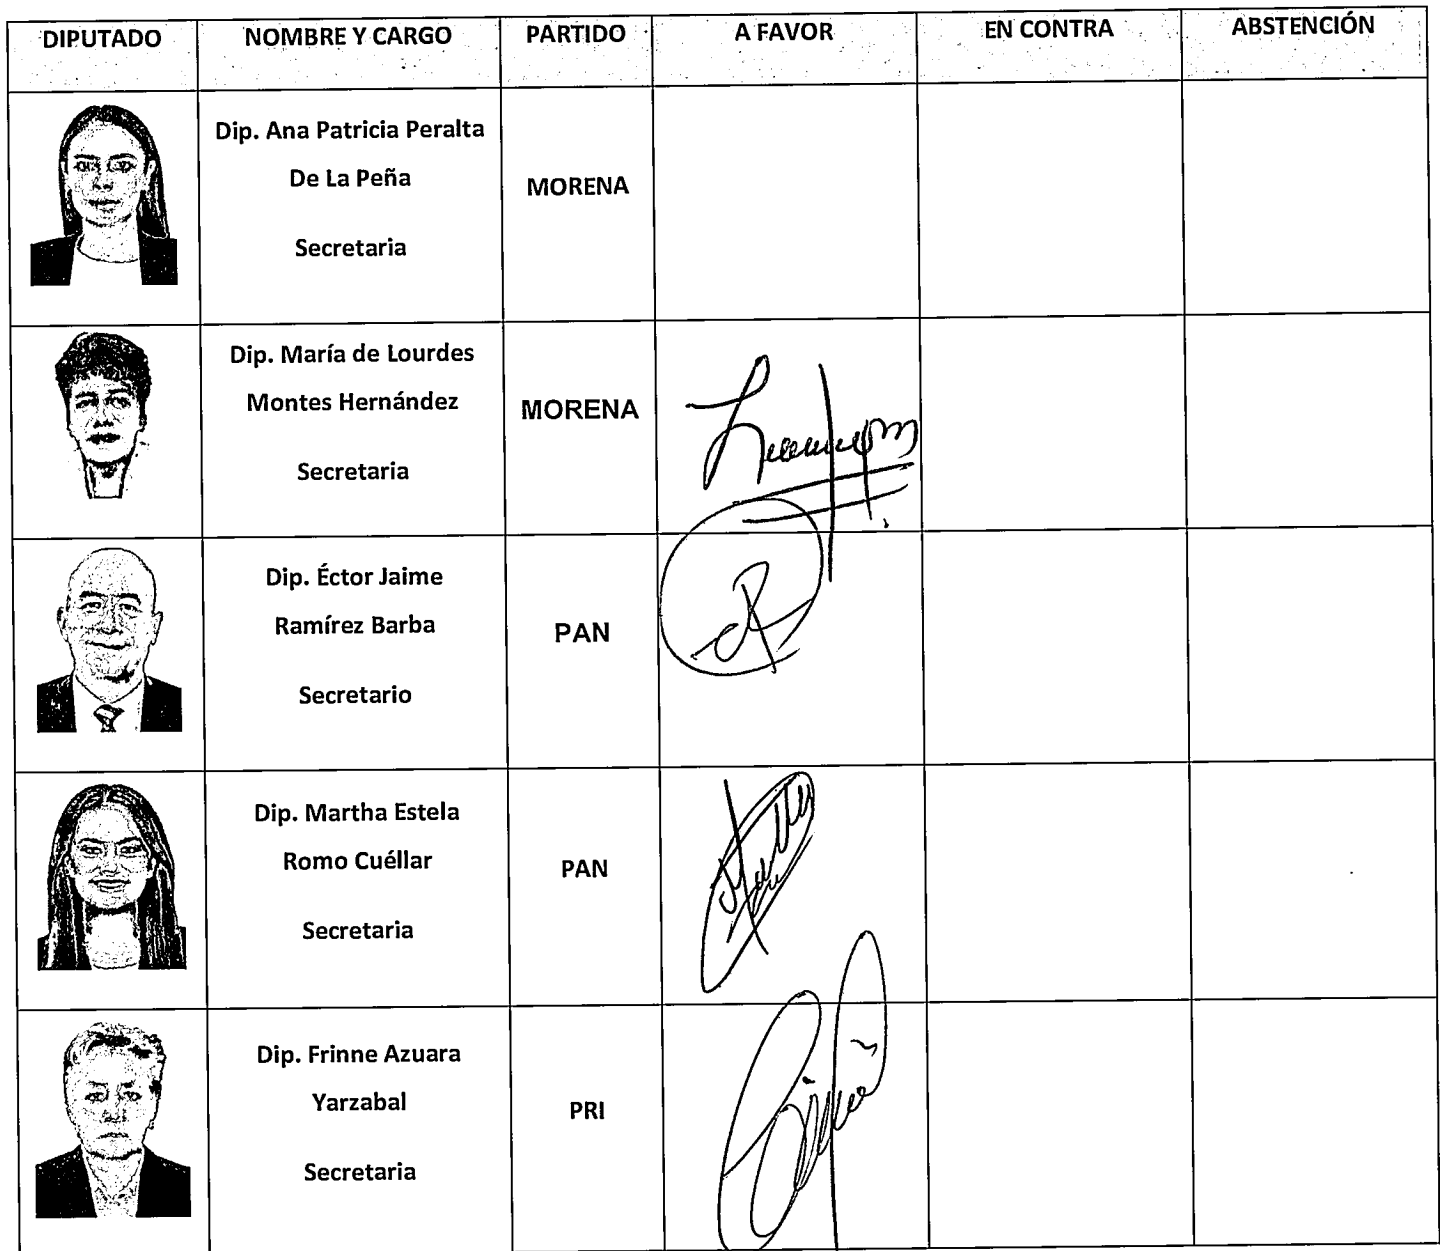 DIPUTADO NOMBRE Y CARGO PARTIDO A FAVOR EN CONTRA ABSTENCIÓN
Dip. Ana Patricia Peralta
De La Peña
MORENA
Secretaria
Dip. María de Lourdes
Montes Hernández
MORENA
Secretaria
Dip. Éctor Jaime
Ramírez Barba
PAN
Secretario
Dip. Martha Estela
Romo Cuéllar
PAN
Secretaria
Dip. Frinne Azuara
Yarzabal
PRI
Secretaria